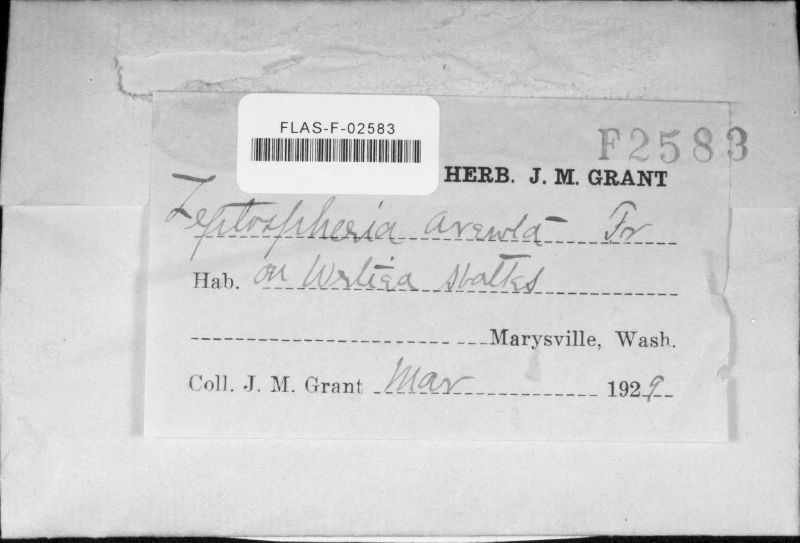 FLAS-F-02583
F2583
HERB. J. M. GRANT
Leptospheria Fr
Hab. on stalks
Marysville, Wash.
Coll. J. M. Grant Mar 1929